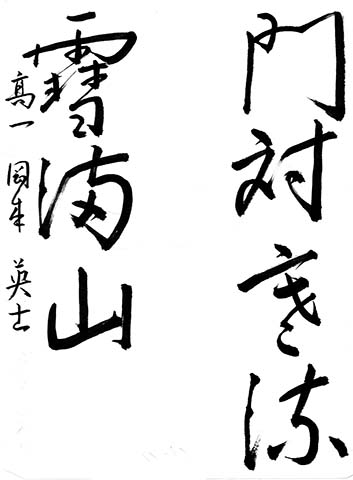 門対寒流
雪満山
高一 岡本 英士